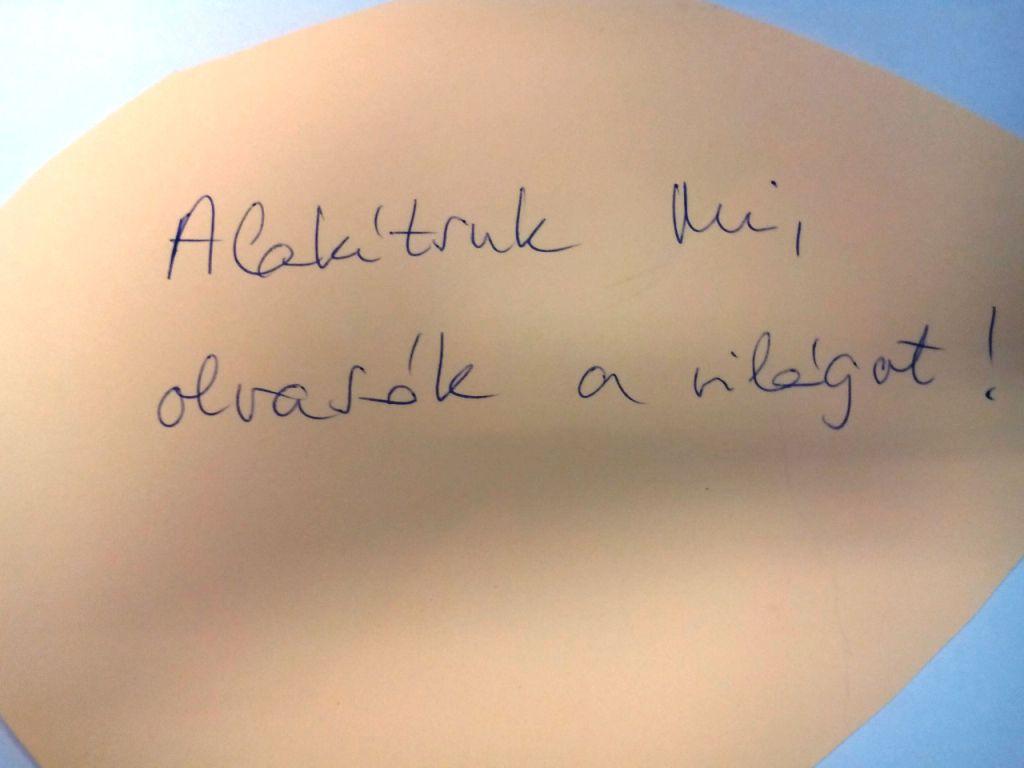 Alakítsuk mi,
olvasók a világot!